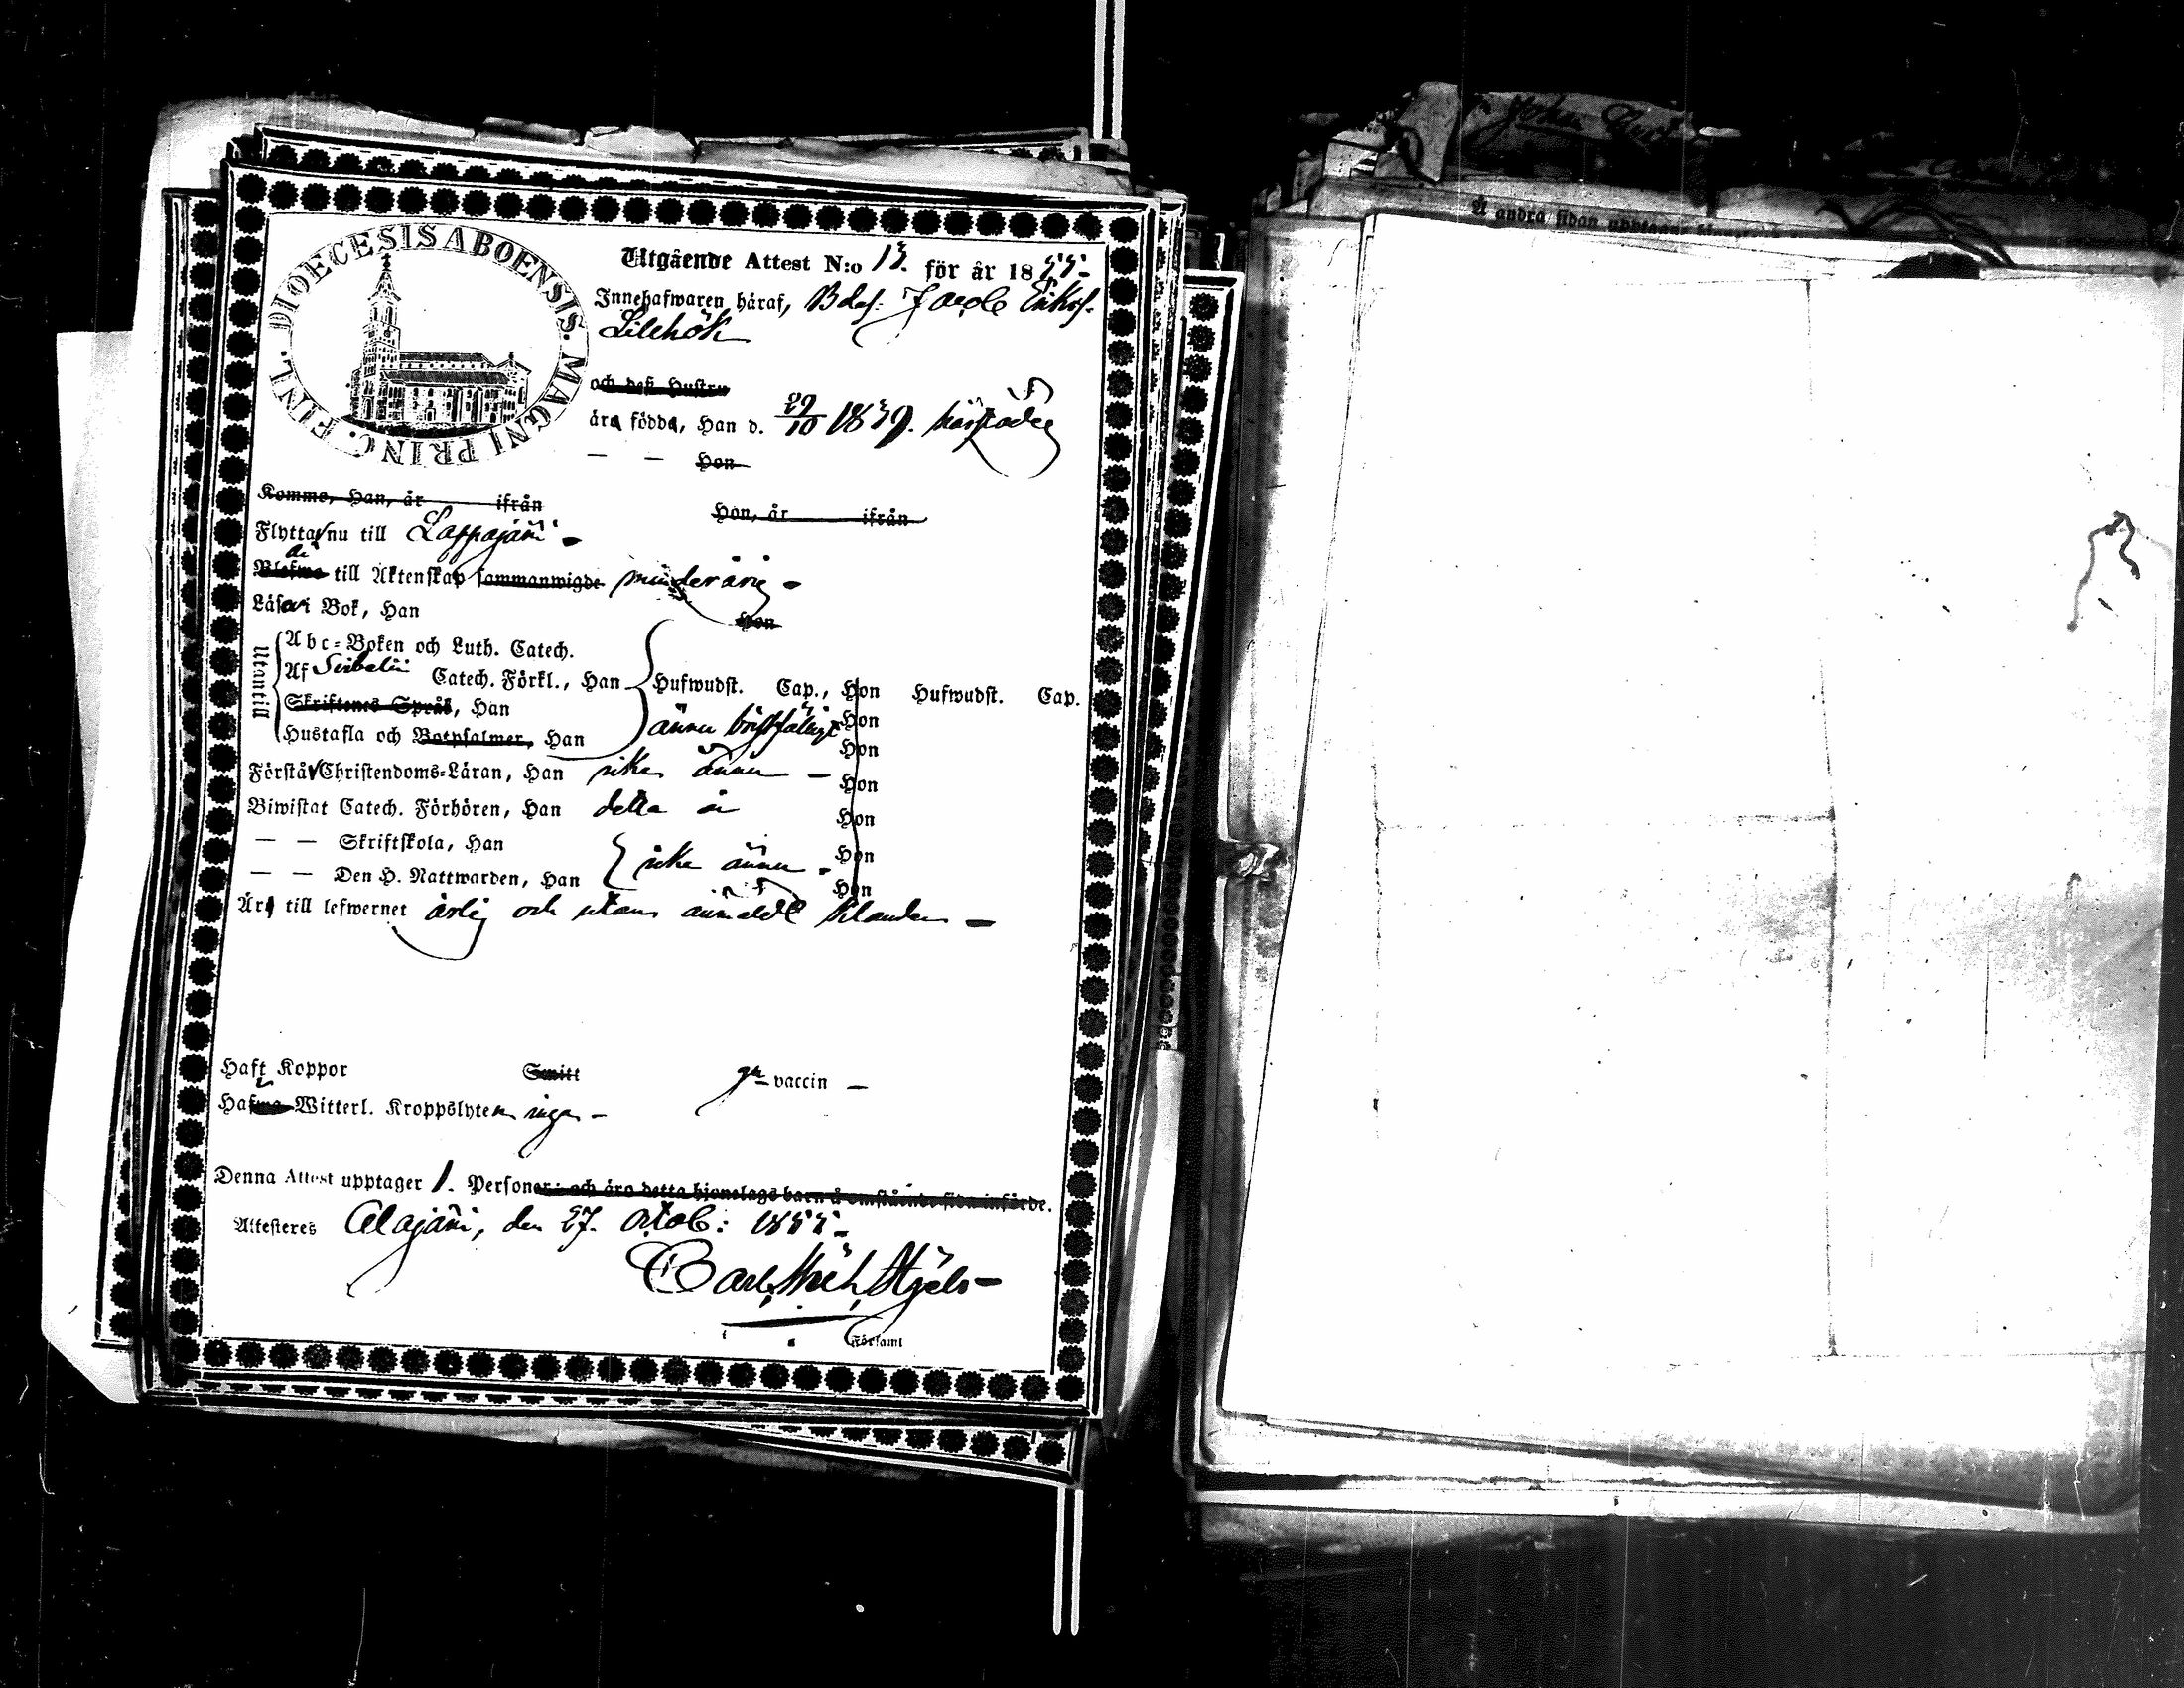 DIOECESIS ABOENSIS. MAGNI PRINC. FINL.
Utgående Attest N:o 13. för år 1855.
Innehafwaren häraf, Bdes. Jacob Eriks.
Lillhök
och dess Hustru
äro födde, Han d. 29/10 1839. härstädes
— — Hon
Komme, Han, år ifrån Hon, år ifrån
Flytta nu till Lappajärvi
är
Blefwo till Äktenskap sammanwigde minderårig
Läser i Bok, Han Hon
Utantill
Abc-Boken och Luth. Catech.
Af Svebelii Catech. Förkl., Han Hufwudst. Cap., Hon Hufwudst. Cap.
Skriftenes Språk, Han ännu bristfälligt Hon
Hustafla och Botpsalmer, Han Hon
Förstå Christendoms-Läran, Han icke ännu — Hon
Biwistat Catech. Förhören, Han detta år Hon
— — Skriftskola, Han icke ännu Hon
— — Den H. Nattwarden, Han Hon
Är till lefwernet ärlig och utan anmäldt klander —
Haft Koppor Smitt gm vaccin —
Hafwa Witterl. Kroppslyten inga —
Denna Attest upptager 1. Personer: och äro detta hjonelags barn å omstående sida införde.
Attesteras Alajärvi, den 27. Octob: 1855
Carl
Förfaml
Å andra sidan upptagas
John